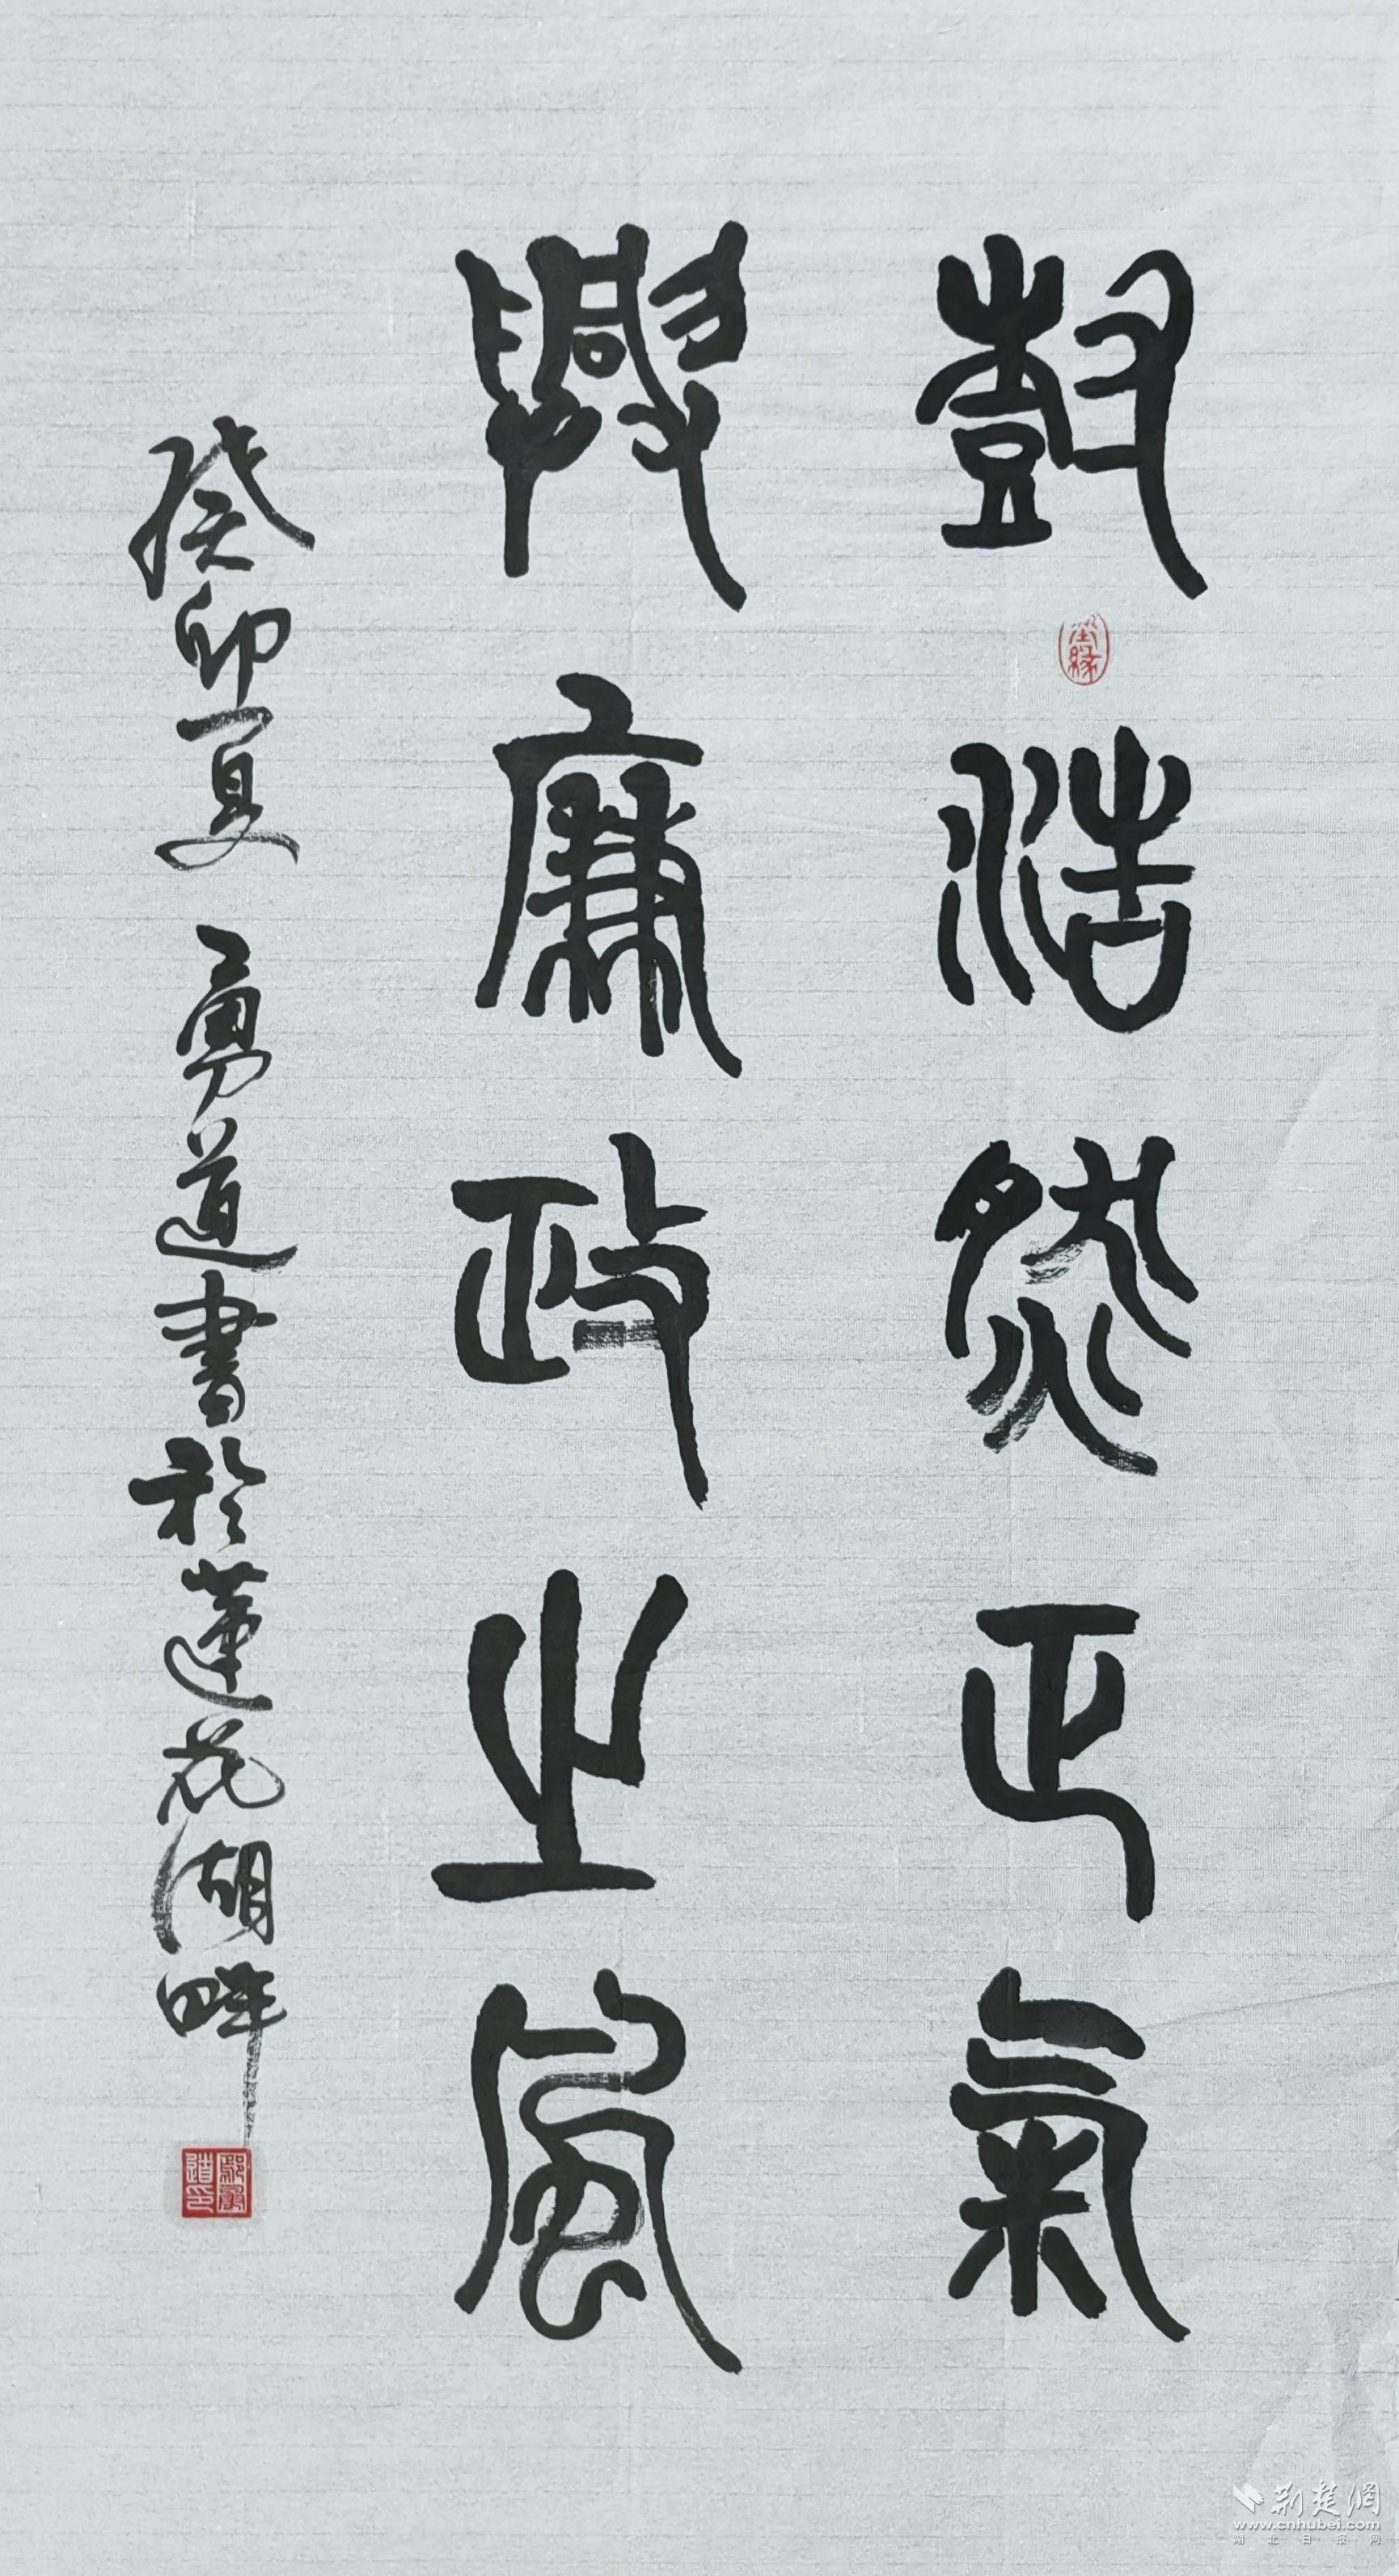 鼓浩然正氣
興廉政之風
癸卯夏 勇道書於蓮花湖畔
荆楚網
www.cnhubei.com
湖北日报网